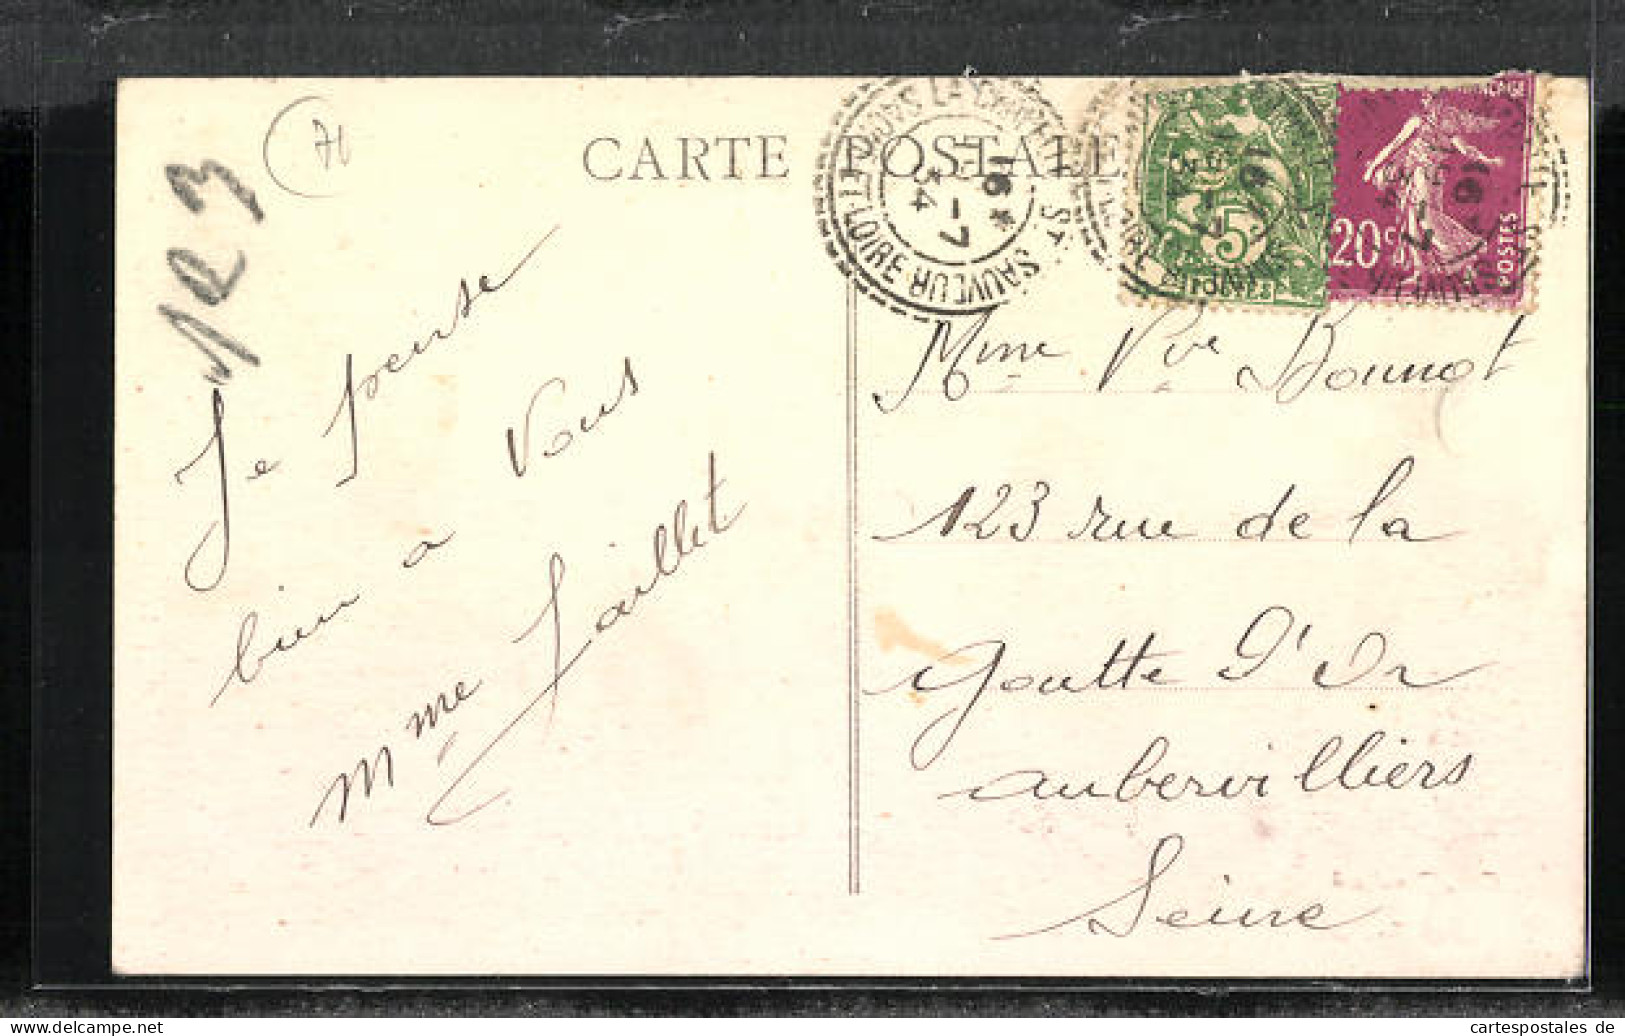 71
123
CARTE POSTALE
ST SAUVEUR
SAÔNE-ET-LOIRE
16 *
-7
34
5c
20c
POSTES
Je pense
bien a vous
Mme Jaillet
Mme Vve Bonnot
123 rue de la
Goutte D'Or
aubervilliers
Seine
cartespostales de